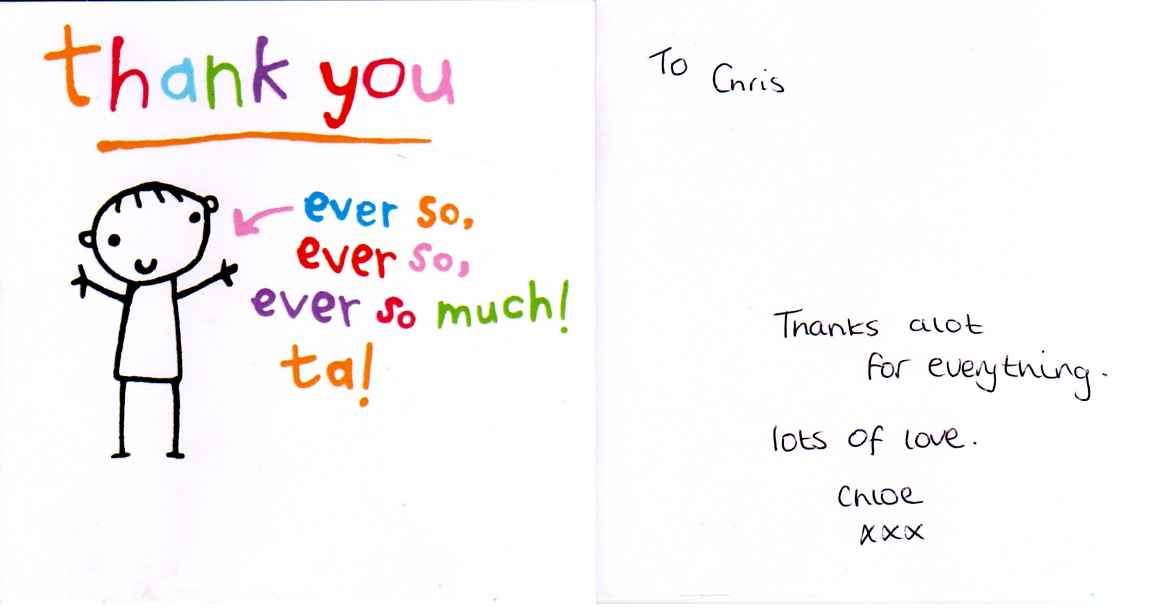 thank you
ever so,
ever so,
ever so much!
ta!
To Chris
Thanks alot
for everything.
lots of love.
Chloe
xxx